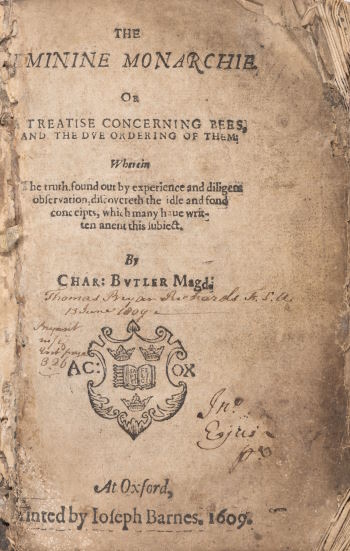 THE
EMININE MONARCHIE
OR
A TREATISE CONCERNING BEES,
AND THE DVE ORDERING OF THEM:
Wherein
The truth, found out by experience and diligent
observation, discovereth the idle and fond
conceipts, which many haue writ-
ten anent this subiect.
By
CHAR: BVTLER Magd:
Thomas Bryan Richards F.S.A.
13 June 1809
AC: OX
Jno
At Oxford,
inted by Ioseph Barnes. 1609.